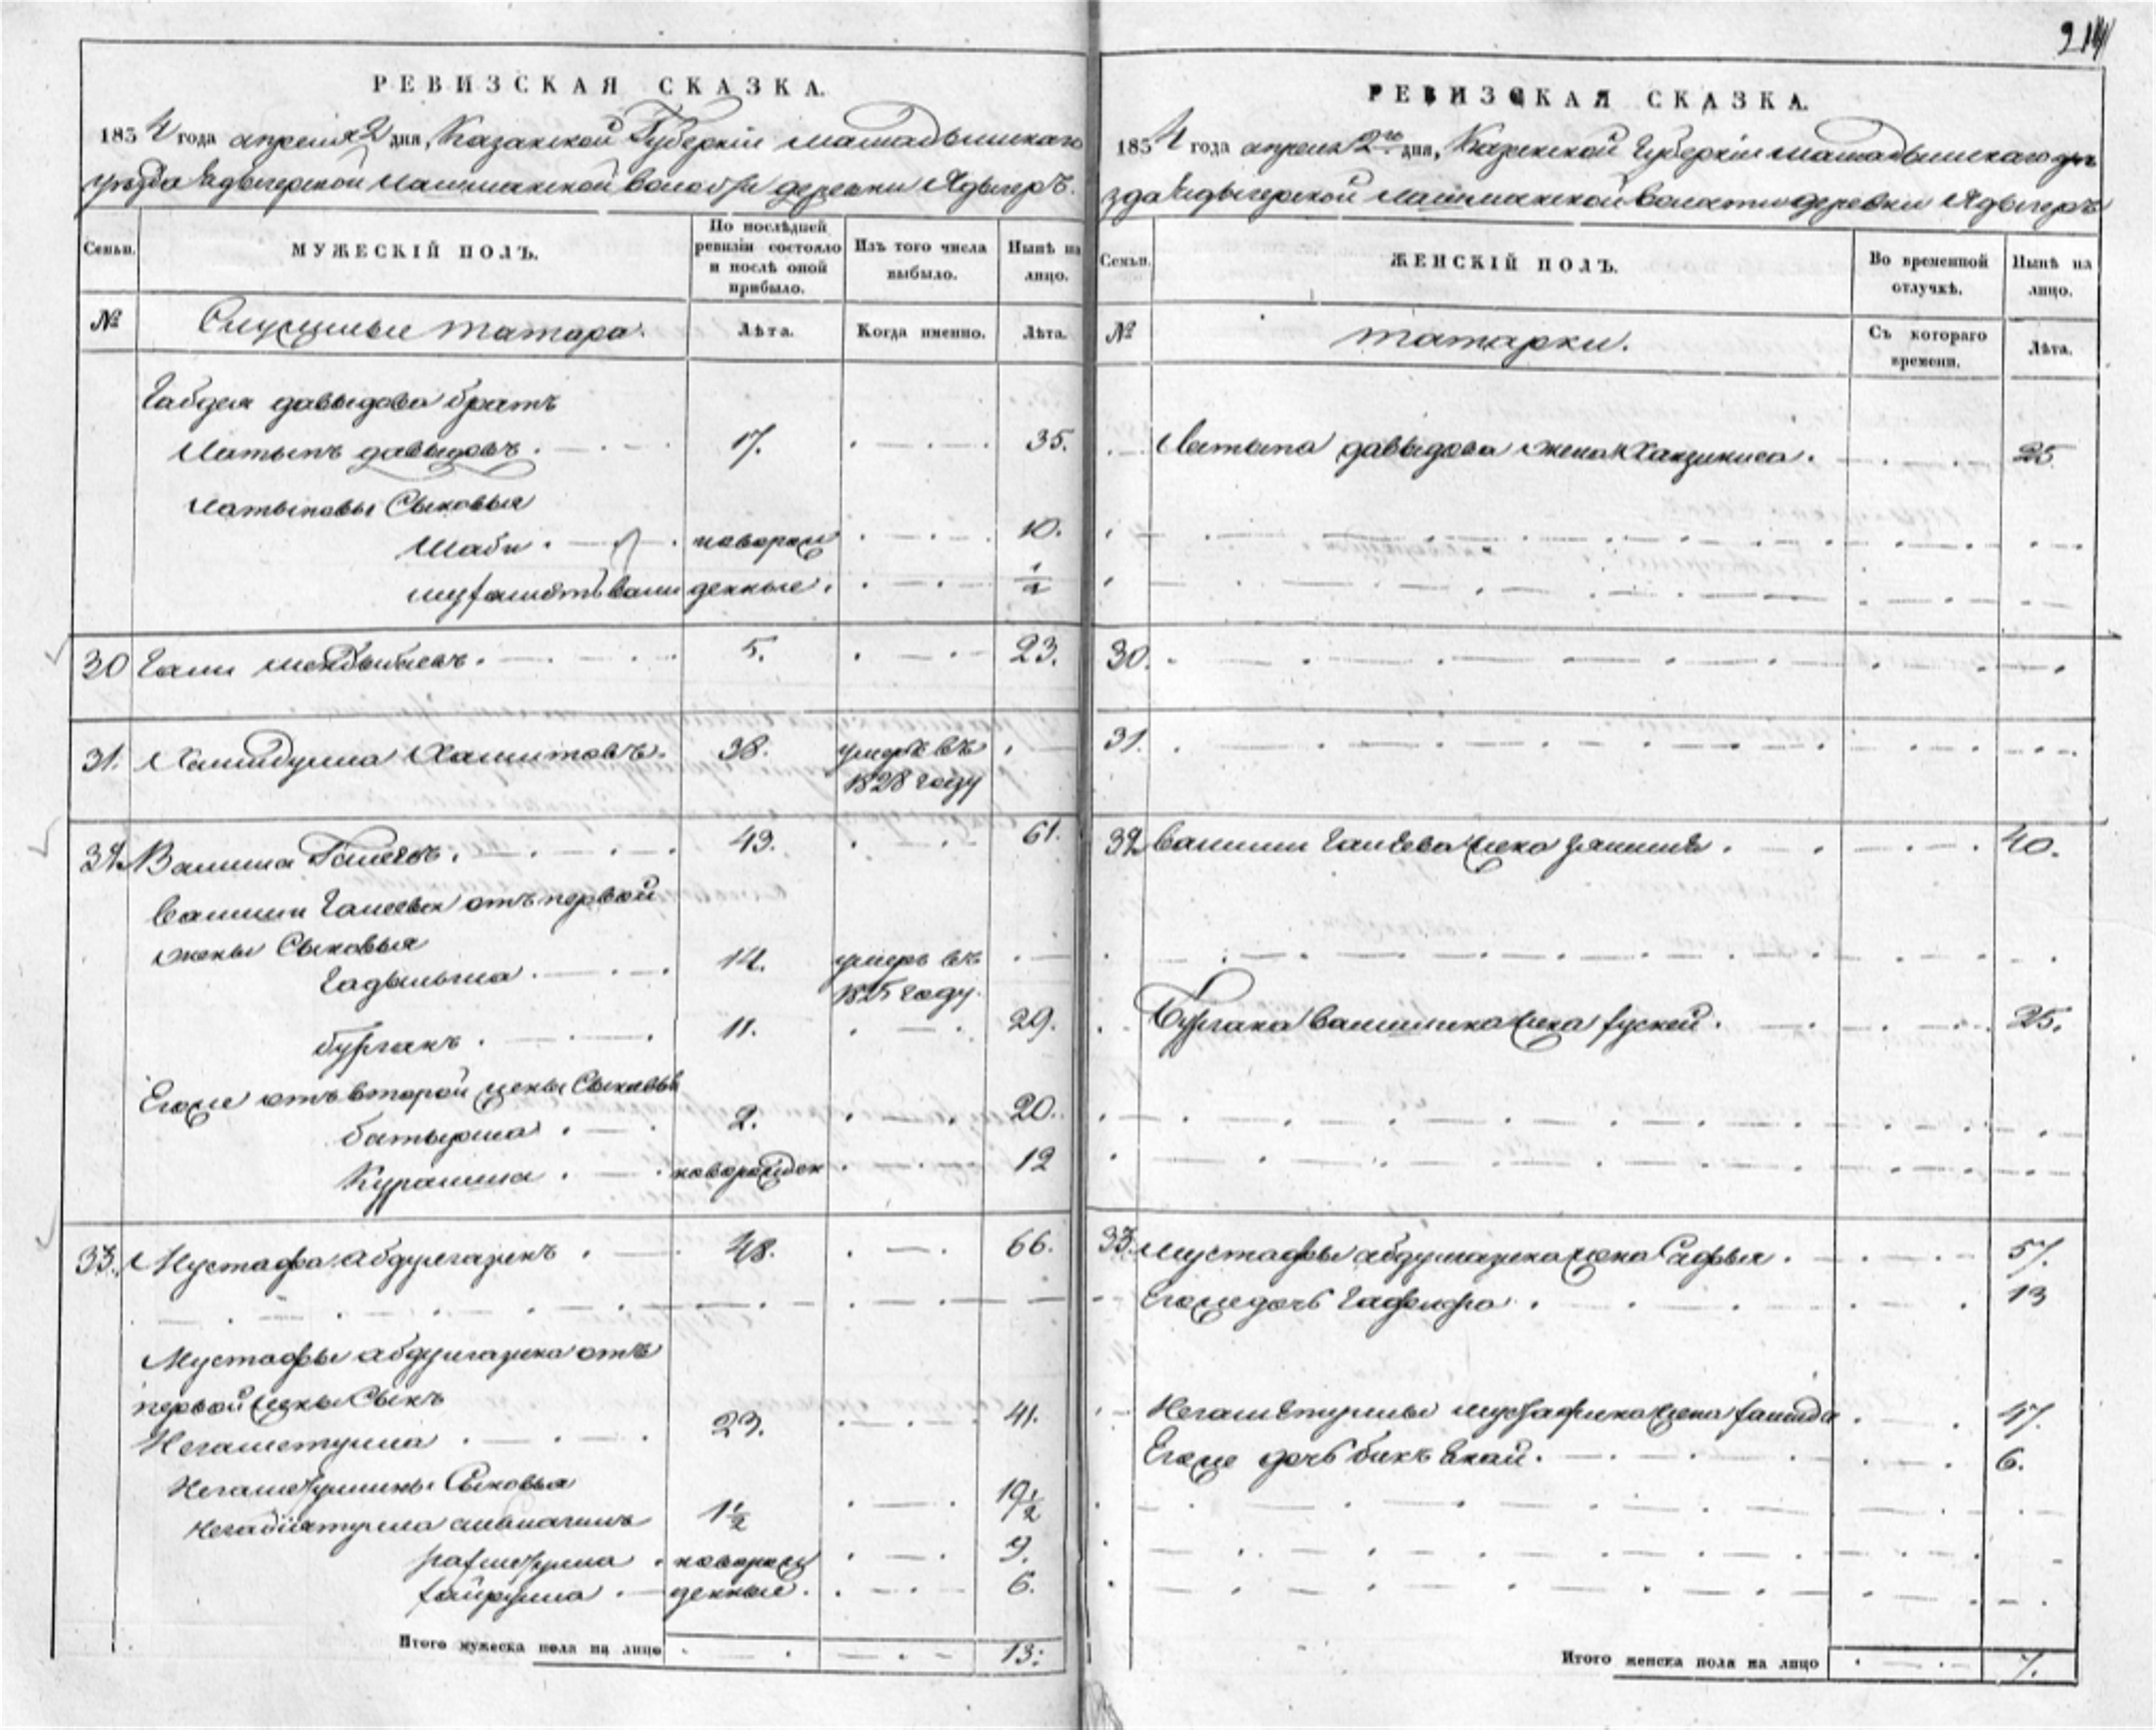 214
РЕВИЗСКАЯ СКАЗКА.
1834 года апреля 2 дня, Казанской Губернiи мамадышскаго
уезда Ядыгерской лашманской волости деревни Ядыгеръ.
Семьи.
МУЖЕСКІЙ ПОЛЪ.
По послѣдней ревизіи состояло и послѣ оной прибыло.
Изъ того числа выбыло.
Нынѣ на лицо.
№
Служилые татара.
Лѣта.
Когда именно.
Лѣта.
Габдея давыдова братъ
Латыпъ давыдовъ. 17. 35.
Латыповы Сыновья
Шаби новорож 10.
денные. 1/2
30 Гали 5. 23.
31. Хамитовъ. 38. умеръ въ
1828 году
32. Валиша Галеевъ. 43. 61.
Валиши Галеева отъ первой
жены Сыновья
Гадыльша 14. умеръ въ
году.
бурганъ 11. 29.
Егоже отъ второй жены Сыновья
батырша 2. 20.
Курамша новорожден 12
33. Мустафа абдулгазинъ 48. 66.
Мустафы абдулгазина отъ
первой жены Сынъ
Негаметулла 23. 41.
Негаметуллины Сыновья
1 1/2 19 1/2
новорож 9.
денные. 6.
Итого мужеска пола на лицо 13:
РЕВИЗСКАЯ СКАЗКА.
1834 года апреля 2го дня, Казанской Губернiи мамадышскаго уе
зда Ядыгерской лашманской волости деревни Ядыгеръ
Семьи.
ЖЕНСКІЙ ПОЛЪ.
Во временной отлучкѣ.
Нынѣ на лицо.
№
татарки.
Съ котораго времени.
Лѣта.
Латыпа давыдова жена 25
30.
31.
32 Валиши Галеева жена 40.
Бургана Валишина жена 25.
33. Мустафы абдулгазина жена Сафья. 57.
Егоже дочь 13
Негаметуллы жена 47.
Егоже дочь 6.
Итого женска пола на лицо 7.